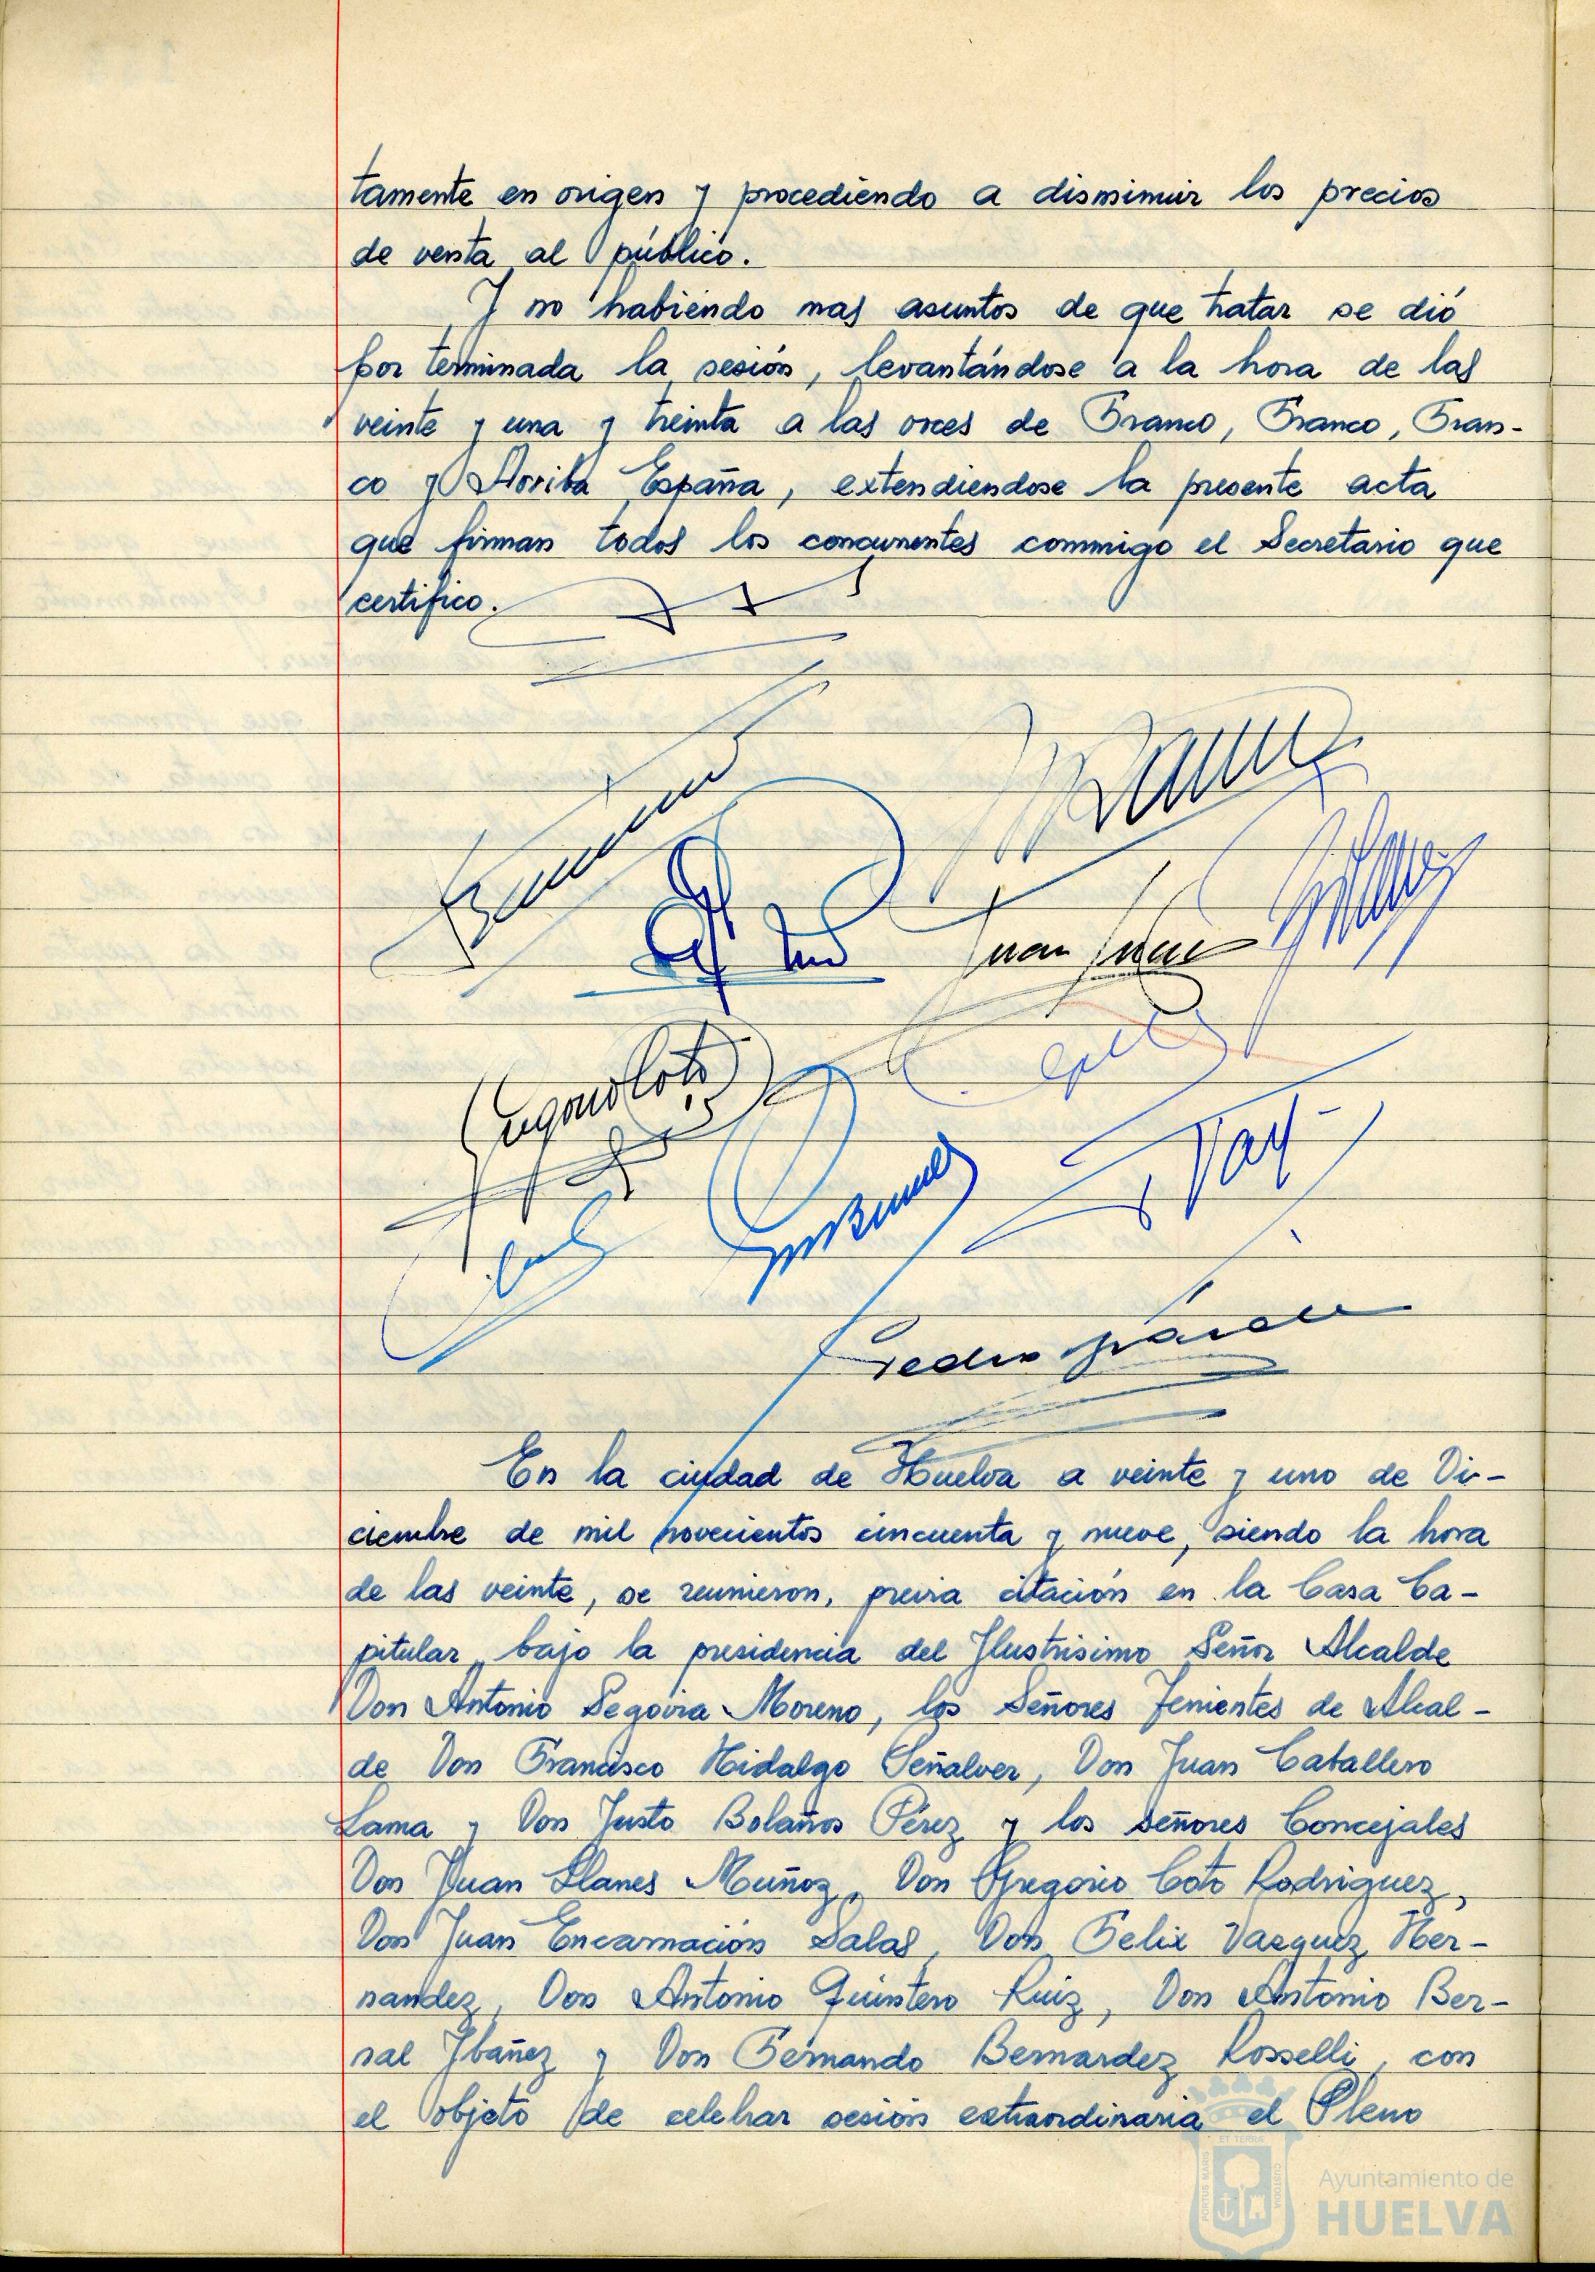 tamente en origen y procediendo a disminuir los precios
de venta al público.
Y no habiendo mas asuntos de que tratar se dió
por terminada la sesión, levantándose a la hora de las
veinte y una y treinta a las voces de Franco, Franco, Fran-
co y Arriba España, extendiendose la presente acta
que firman todos los concurrentes conmigo el Secretario que
certifico.
Juan
Gregorio Coto
Pedro
En la ciudad de Huelva a veinte y uno de Di-
ciembre de mil novecientos cincuenta y nueve, siendo la hora
de las veinte, se reunieron, previa citación en la Casa Ca-
pitular bajo la presidencia del Ilustrisimo Señor Alcalde
Don Antonio Segovia Moreno, los Señores Tenientes de Alcal-
de Don Francisco Hidalgo Peñalver, Don Juan Caballero
Lama y Don Justo Bolaños Pérez y los señores Concejales
Don Juan Llanes Muñoz, Don Gregorio Coto Rodriguez,
Don Juan Encarnación Salas, Don Felix Vazquez Her-
nandez, Don Antonio Quintero Ruiz, Don Antonio Ber-
nal Ybañez y Don Fernando Bernardez Rosselli, con
el objeto de celebrar sesión extraordinaria el Pleno
PORTUS MARIS
ET TERRÆ
CUSTODIA
Ayuntamiento de
HUELVA